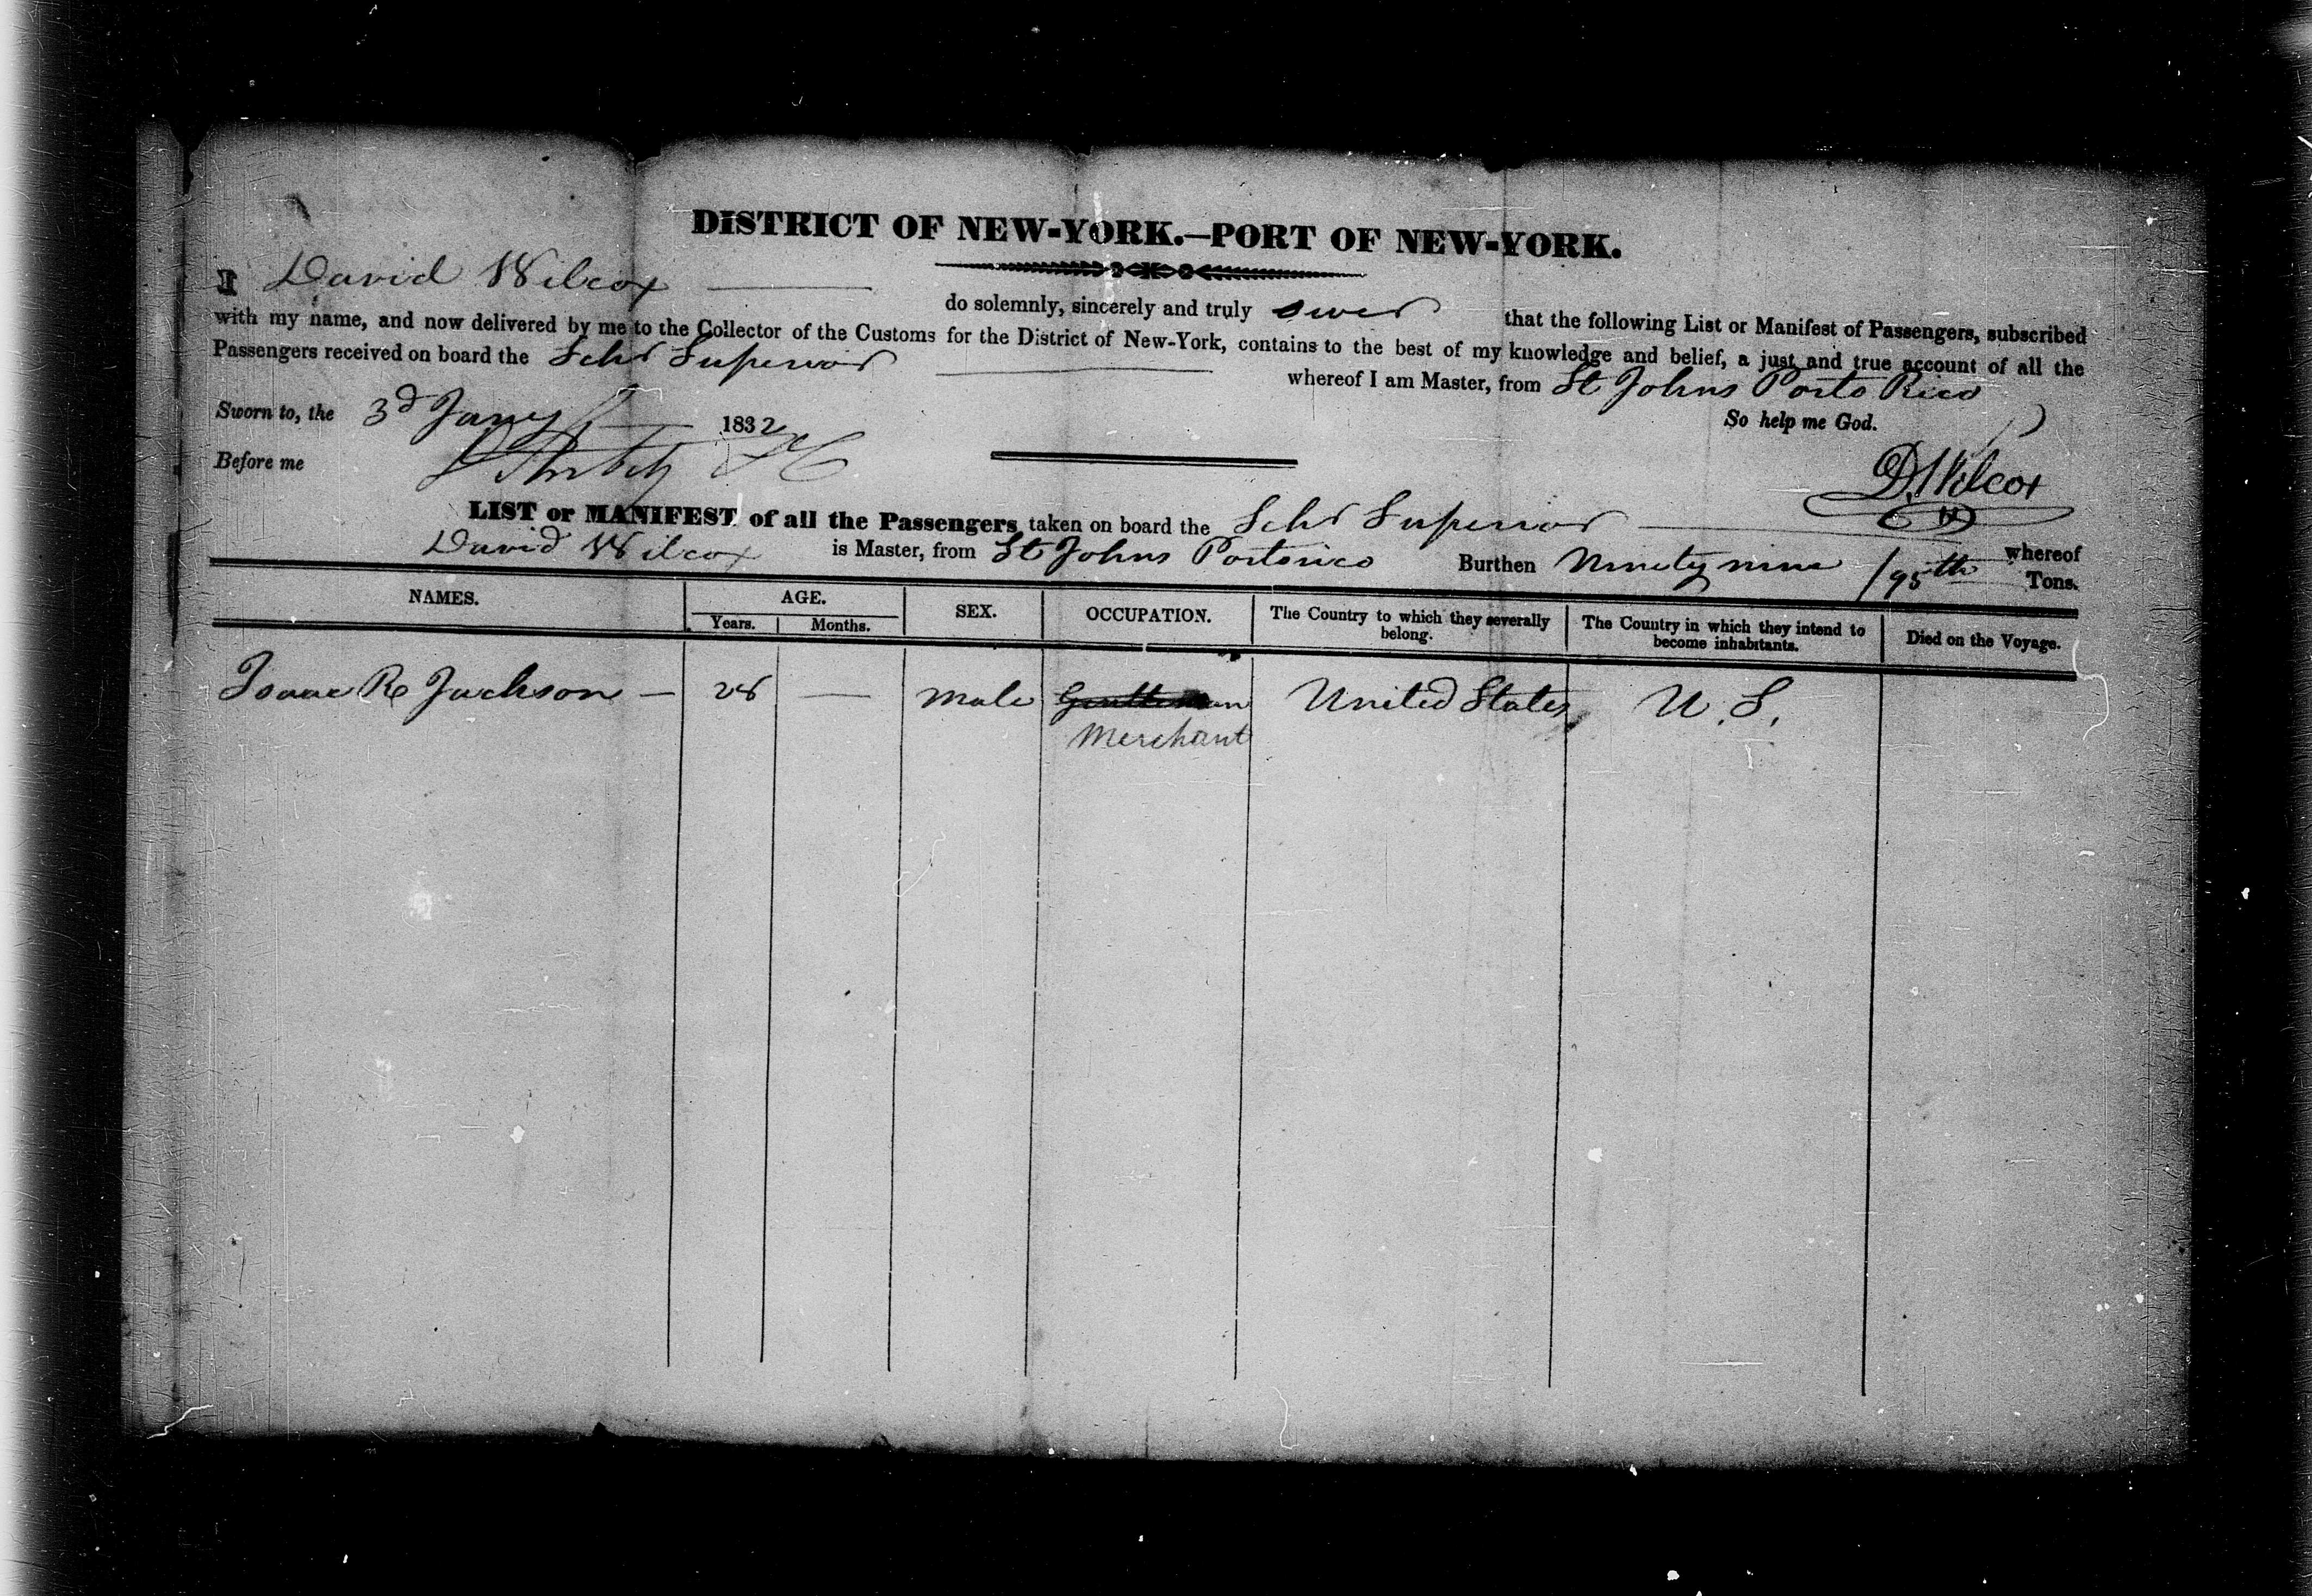 DISTRICT OF NEW-YORK.—PORT OF NEW-YORK.
I David Wilcox do solemnly, sincerely and truly swear that the following List or Manifest of Passengers, subscribed
with my name, and now delivered by me to the Collector of the Customs for the District of New-York, contains to the best of my knowledge and belief, a just and true account of all the
Passengers received on board the Schr Superior whereof I am Master, from St Johns Porto Rico
Sworn to, the 3d Jany 1832 So help me God.
Before me
D. Wilcox
LIST or MANIFEST of all the Passengers taken on board the Schr Superior whereof
David Wilcox is Master, from St Johns Portorico Burthen Ninety nine /95th Tons.
NAMES. AGE. SEX. OCCUPATION. The Country to which they severally belong. The Country in which they intend to become inhabitants. Died on the Voyage.
Years. Months.
Isaac R Jackson — 28 — Male Gentleman United States U.S.
Merchant